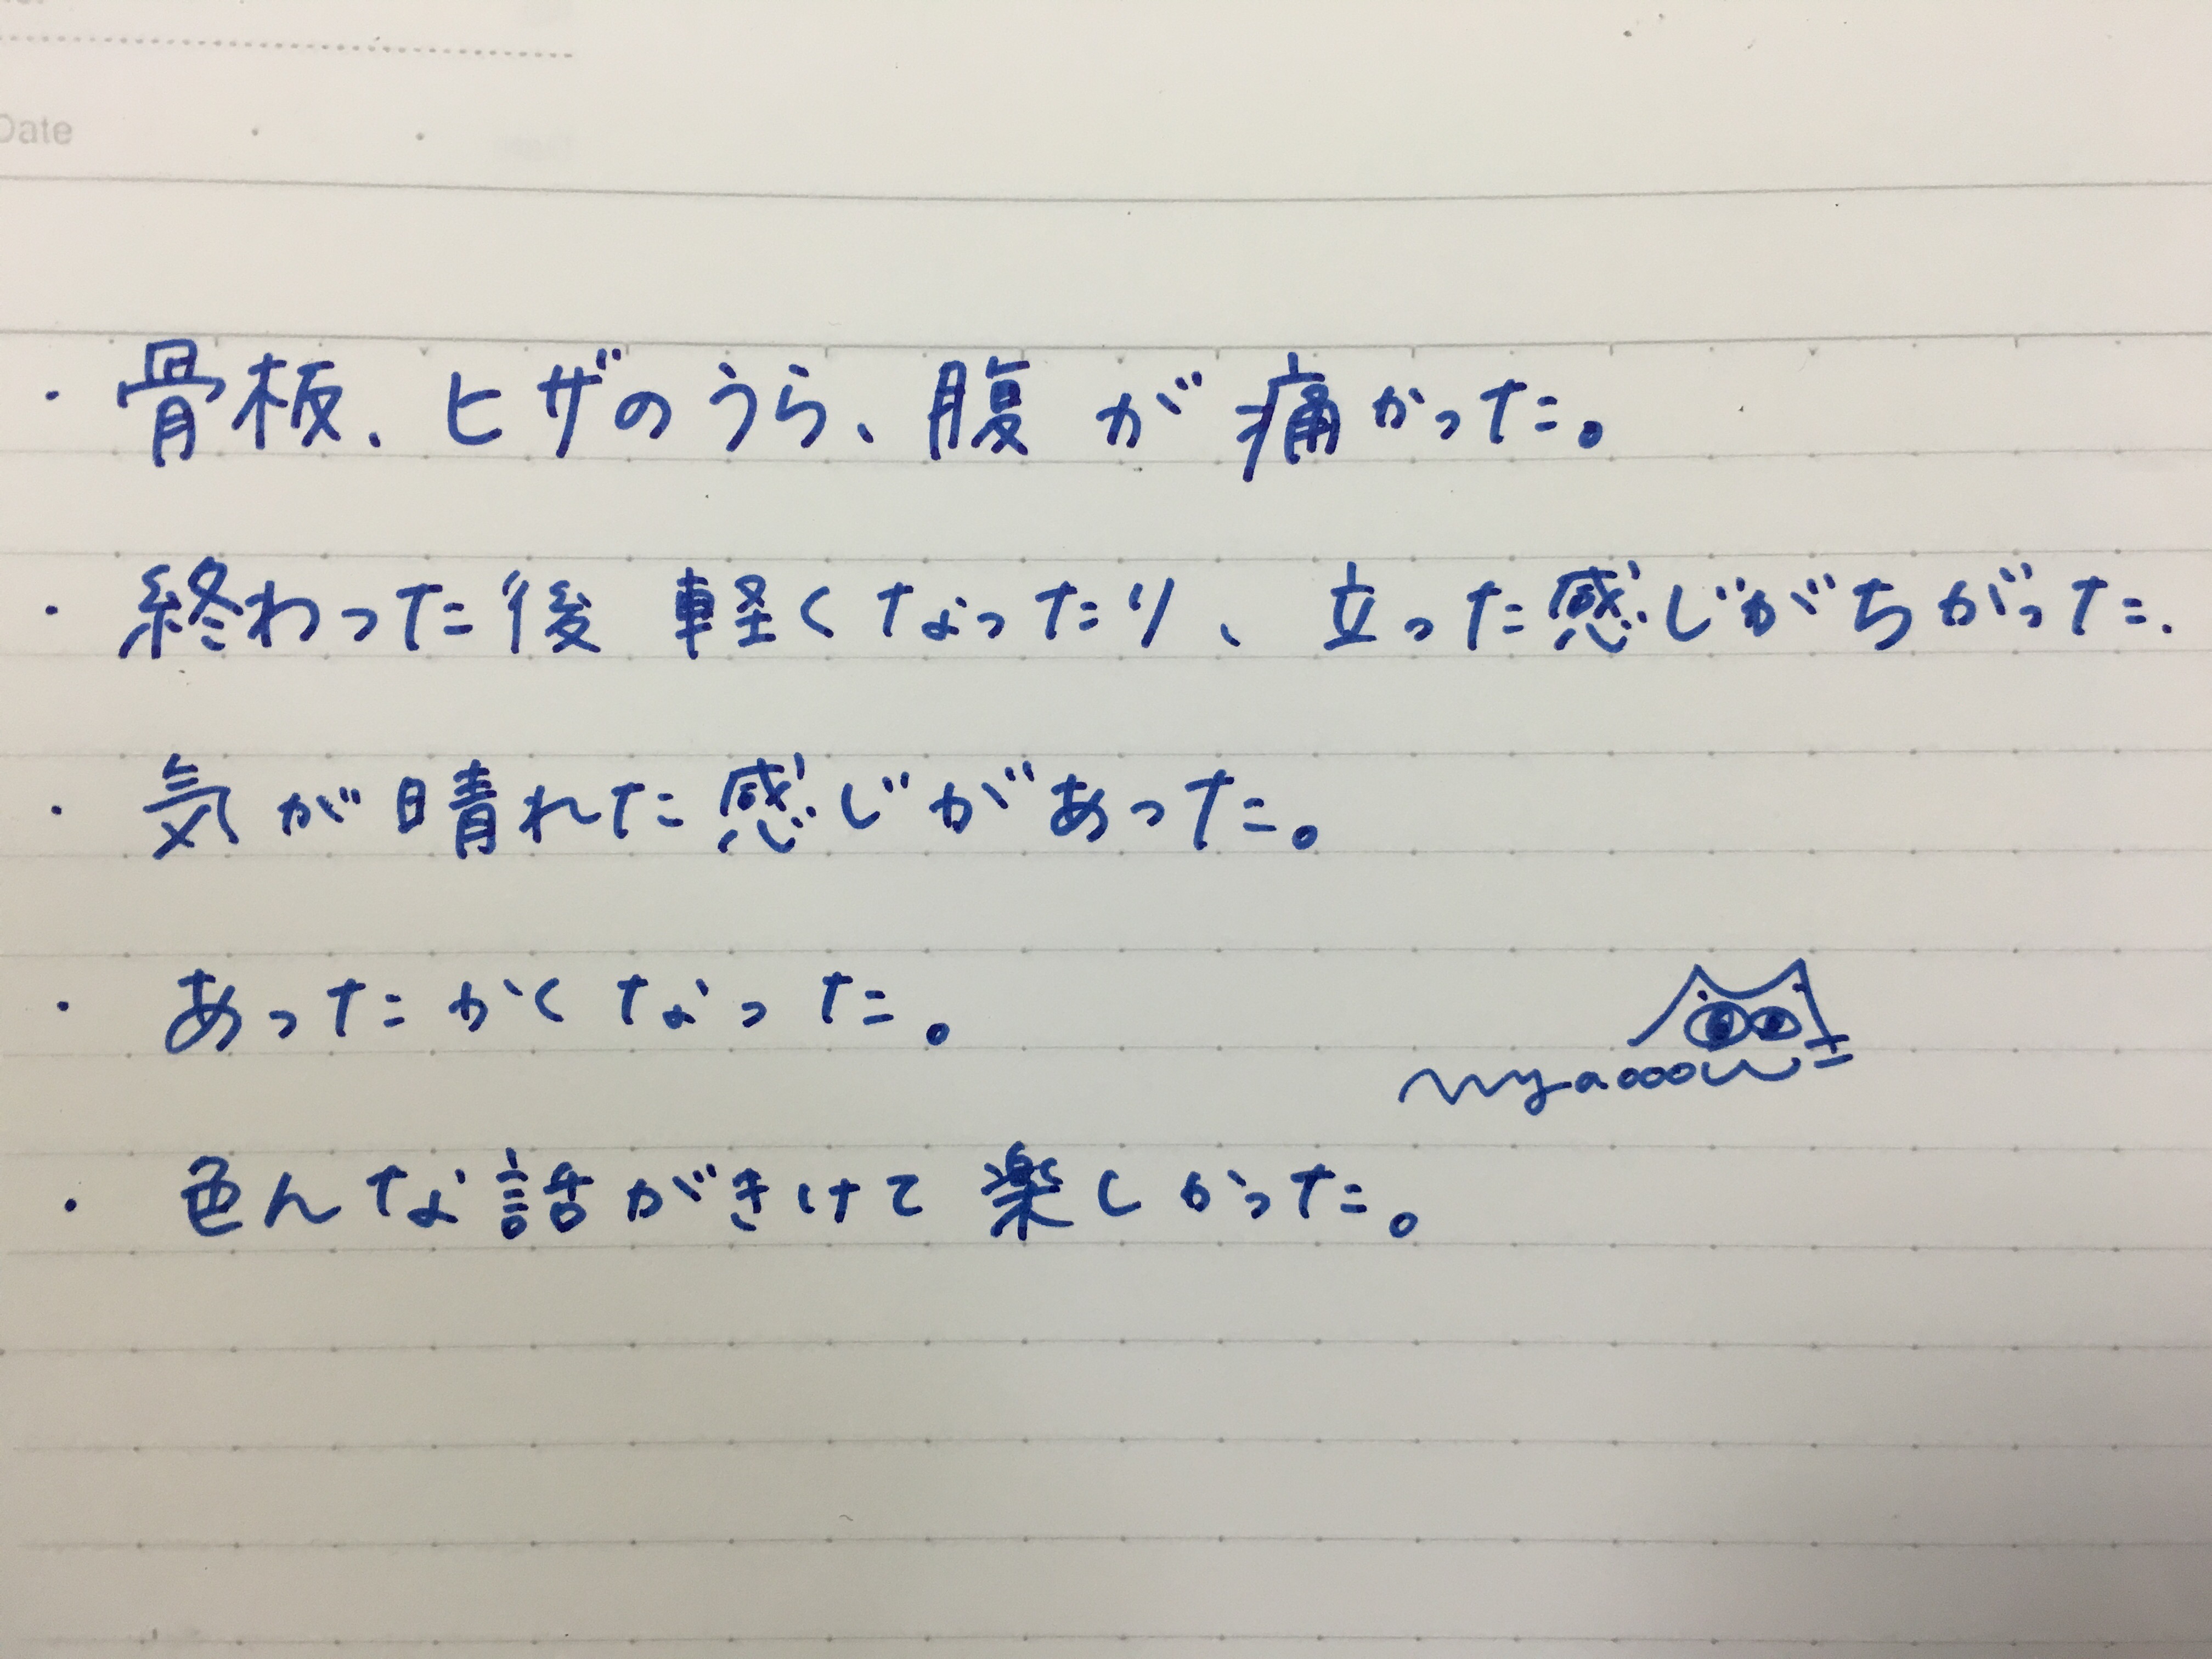 Date
・骨板、ヒザのうら、腹が痛かった。
・終わった後 軽くなったり、立った感じがちがった.
・気が晴れた感じがあった。
・あったかくなった。
nyaooow
・色んな話がきけて楽しかった。